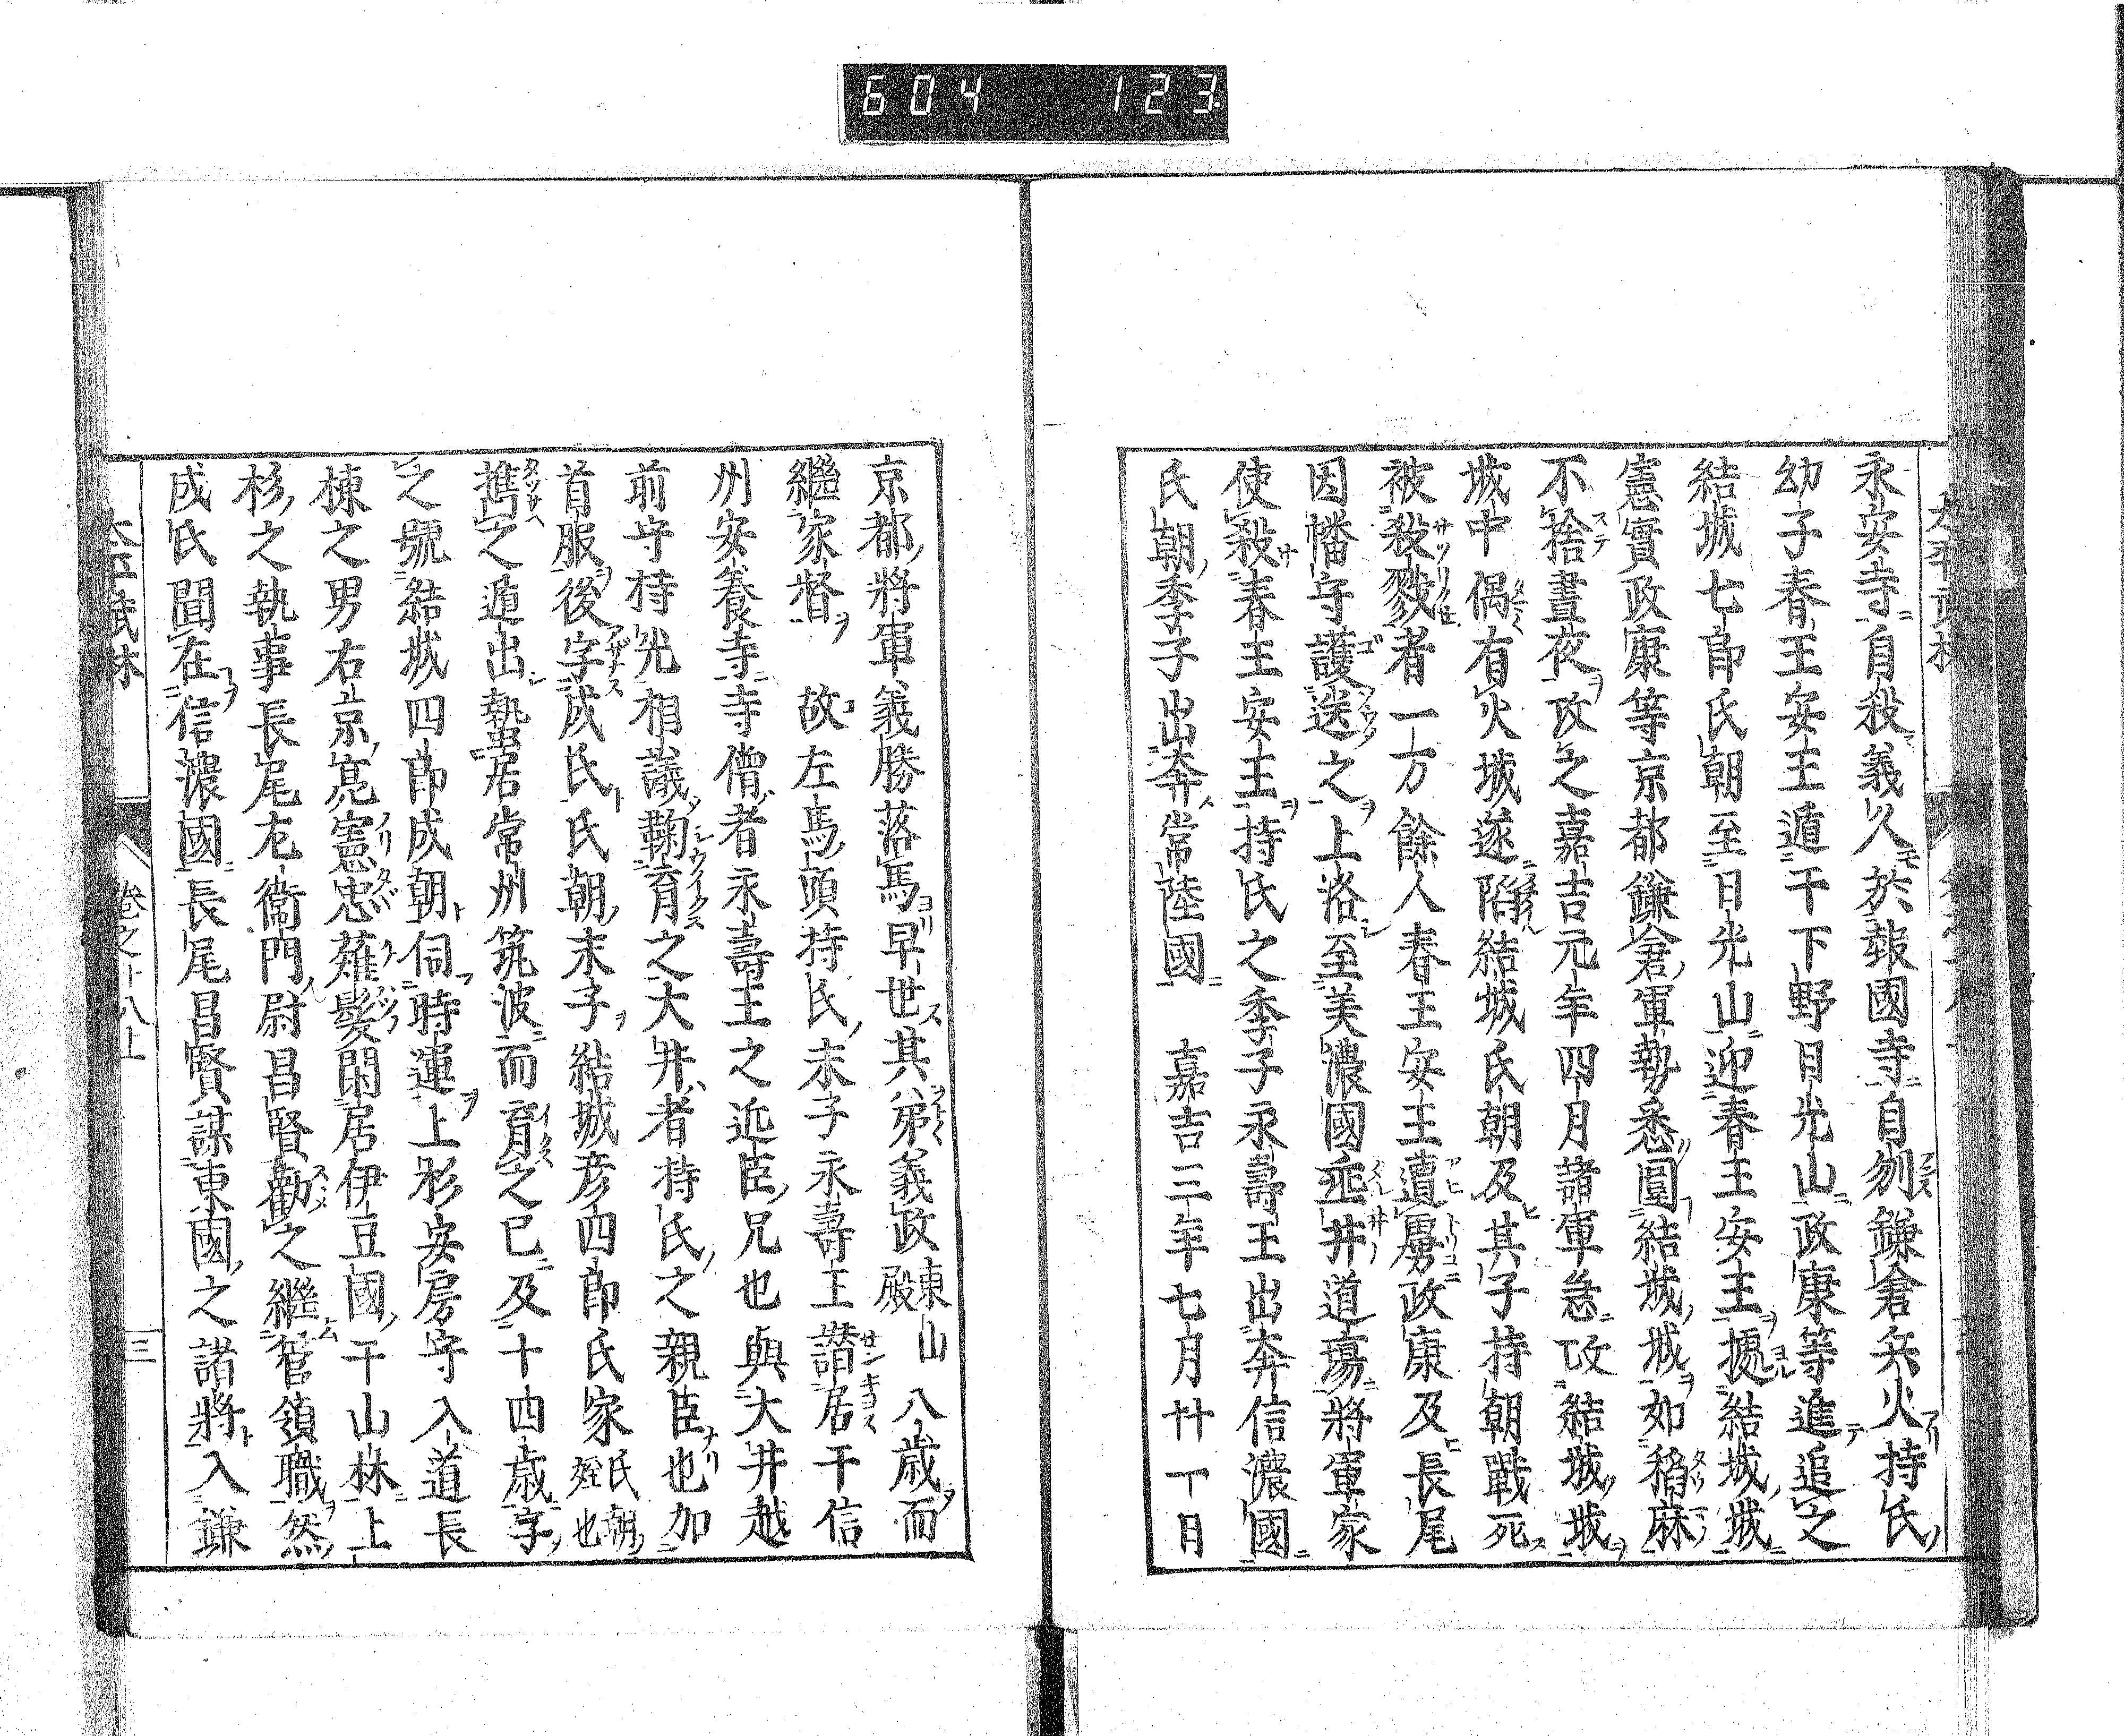 604 123
永安寺自殺義久於報國寺自刎鎌倉兵火持氏
幼子春王安王遁于下野日光山政康等進追之
結城七郎氏朝至日光山迎春王安王據結城城
憲實政康等京都鎌倉軍勢悉圍結城城如稻麻
不捨晝夜攻之嘉吉元年四月諸軍急攻結城城
城中偶有火城遂陷結城氏朝及其子持朝戰死
被殺戮者一万餘人春王安王遭虜政康及長尾
因幡守護送之上洛至美濃國垂井道場將軍家
使殺春王安王持氏之季子永壽王出奔信濃國
氏朝季子出奔常陸國 嘉吉三年七月廿一日
京都將軍義勝落馬早世其弟義政東山殿八歳而
繼家督 故左馬頭持氏末子永壽王潜居于信
州安養寺寺僧者永壽王之近臣兄也與大井越
前守持光相議鞠育之大井者持氏之親臣也加
首服後字成氏氏朝末子結城彦四郎氏家氏朝姪也
携之遁出蟄居常州筑波而育之已及十四歳字
之號結城四郎成朝伺時運上杉安房守入道長
棟之男右京亮憲忠薙髮閑居伊豆國于山林上
杉之執事長尾左衞門尉昌賢勸之繼管領職然
成氏聞在信濃國長尾昌賢謀東國之諸將入鎌
太平武林 卷之十八上 三